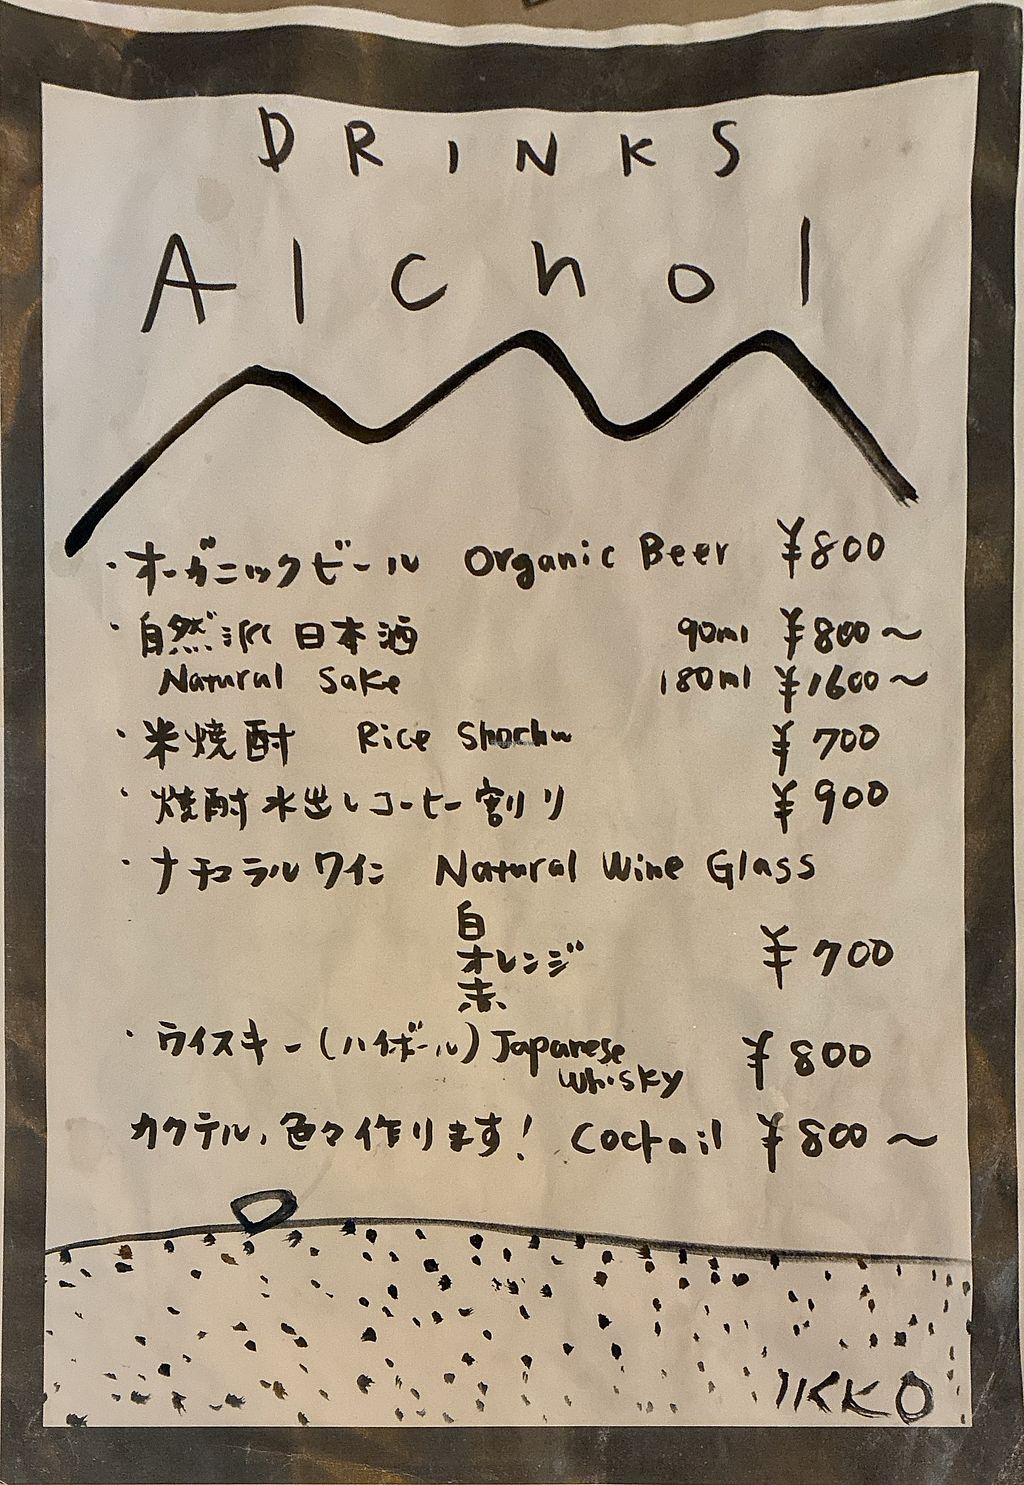 DRINKS
Alchol
・オーガニックビール Organic Beer ¥800
・自然派 日本酒 90ml ¥800〜
Natural Sake 180ml ¥1600〜
・米焼酎 Rice Shochu ¥700
・焼酎水出しコーヒー割り ¥900
・ナチュラルワイン Natural Wine Glass
白
オレンジ ¥700
赤
・ウイスキー(ハイボール) Japanese ¥800
Whisky
カクテル、色々作ります! Coctail ¥800〜
IKKO